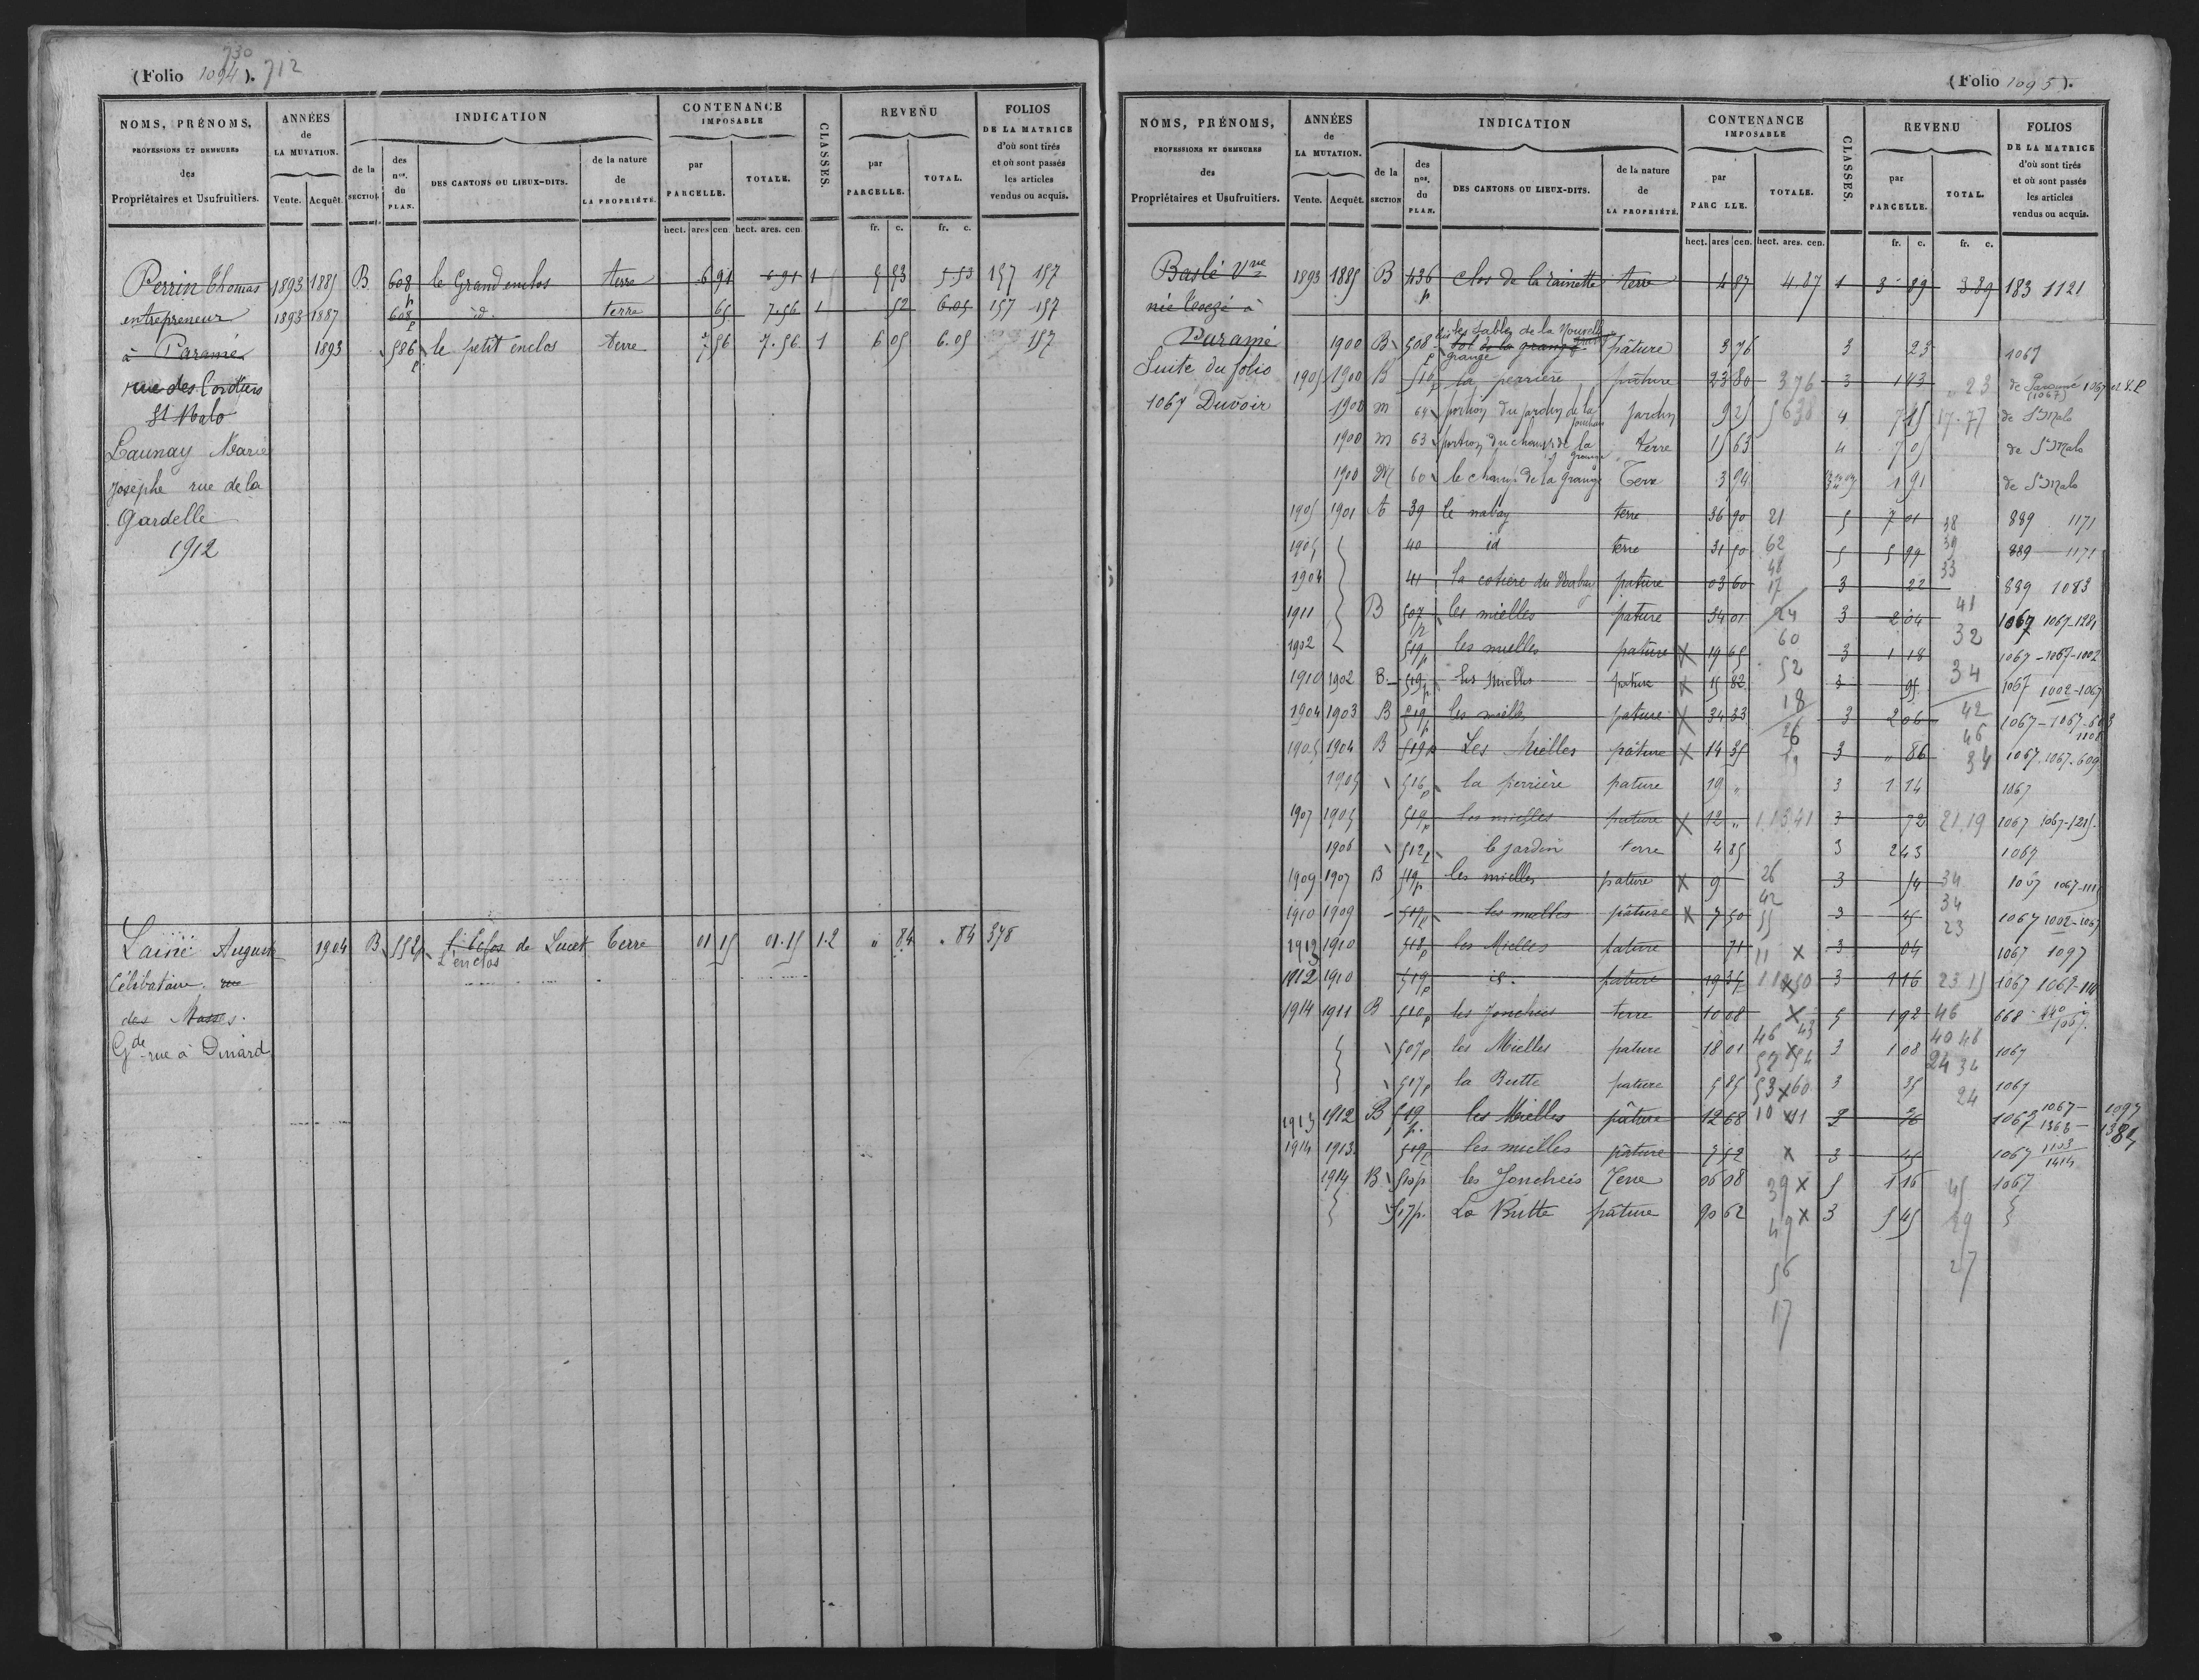 730
(Folio 1094). 712
NOMS, PRÉNOMS, PROFESSIONS ET DEMEURES des Propriétaires et Usufruitiers.
ANNÉES de LA MUTATION. Vente. Acquêt.
INDICATION
de la SECTION. des nos. du PLAN. DES CANTONS OU LIEUX-DITS. de la nature de LA PROPRIÉTÉ.
CONTENANCE IMPOSABLE
par PARCELLE. TOTALE.
CLASSES.
REVENU
par PARCELLE. TOTAL.
FOLIOS DE LA MATRICE d'où sont tirés et où sont passés les articles vendus ou acquis.
hect. ares cen hect. ares. cen. fr. c. fr. c.
Perrin Thomas 1893 1885 B 608 p le Grand enclos terre 6 91 6 91 1 5 53 5 53 157 157
entrepreneur 1893 1887 608 p id. terre 65 7.56 1 52 6.05 157 157
à Paramé 1893 586 p le petit enclos terre 7 56 7.56 1 6 05 6.05 157
rue des Cordiers
St Malo
Launay Marie
Josèphe rue de la
Gardelle
1912
Lainé Auguste 1904 B 552p de Lucet Terre 01 15 01.15 1.2 " 84 " 84 378
L'enclos
Célibataire rue
des Masses.
Gde rue à Dinard
(Folio 1095).
NOMS, PRÉNOMS, PROFESSIONS ET DEMEURES des Propriétaires et Usufruitiers.
ANNÉES de LA MUTATION. Vente. Acquêt.
INDICATION
de la SECTION des nos. du PLAN. DES CANTONS OU LIEUX-DITS. de la nature de LA PROPRIÉTÉ.
CONTENANCE IMPOSABLE
par PARC LLE. TOTALE.
CLASSES.
REVENU
par PARCELLE. TOTAL.
FOLIOS DE LA MATRICE d'où sont tirés et où sont passés les articles vendus ou acquis.
hect. ares cen. hect. ares. cen. fr. c. fr. c.
Baslé Vve 1893 1885 B 436 p Clos de la rainette terre 4 87 4.87 1 3 89 3 89 183 1121
née à
Paramé 1900 B 508 p les Sables de la Nouvelle grange pâture 3 76 3 23 1067
Suite du folio 1905 1900 B 516p la perrière pâture 23 80 376 3 1 43 " 23 de Paramé (1067)
1067 Duvoir 1900 m 64 portion du jardin de la Jardin 9 25 5638 4 7 15 17.77 de St Malo
1900 m 63 portion du champ de la grange Terre 15 63 4 7 05 de St Malo
1900 M 60 le champ de la grange Terre 3 94 1 91 de St Malo
1905 1901 A 39 le nabay terre 36 90 21 5 7 01 38 889 1171
1905 40 id terre 31 50 62 5 5 99 39 889 1171
1904 41 la cotière du Nabay pature 03 60 48 17 3 22 33 889 1083
1911 B 507 p les mielles pature 34 01 24 3 2 04 41 1067 1067-1281
1902 519p les mielles pature X 19 65 60 3 1 18 32 1067-1067-1002
1910 1902 B 519p les Mielles pature X 15 82 52 3 95 34 1067 1002-1067
1904 1903 B 519p les mielles pature X 34 33 18 3 2 06 42 1067-1067-603
1905 1904 B 519p Les Mielles pâture X 14 35 26 3 " 86 46 34 1067.1067.609 1108
1905 516p la perrière pature 19 " 3 1 14 1067
1907 1905 519p les mielles pature X 12 " 1.13.41 3 72 21.19 1067 1067-1215.
1906 512p le jardin terre 4 85 3 2 43 1067
1909 1907 B 519p les mielles pature X 9 26 3 54 34 1067
1910 1909 519p les mielles pâture X 7 50 42 55 3 45 34 23 1067 1002-1067
1913 1910 518p les Mielles pature 71 11 X 3 04 1067 1097
1912 1910 519p id. pature 19 37 3 1 16 23 15 1067 1067
1914 1911 B 510p les Joncheis terre 10 08 X 5 1 92 46 668
507p les Mielles pature 18 01 46 43 3 1 08 40 48 1067
517p la Butte pature 5 85 53 x 60 3 35 24 1067
1913 1912 B 519 p. les Mielles pâture 12 68 10 x 11 3 76 1067 1067- 1368- 1097 1381
1914 1913 519p les mielles pâture 7 52 X 3 45 1067 1103 1414
1914 B 510p les Joncheis Terre 06 08 39 X 5 1 16 45 1067
517p. La Butte pâture 90 62 49 X 3 5 45 29
56 27
17